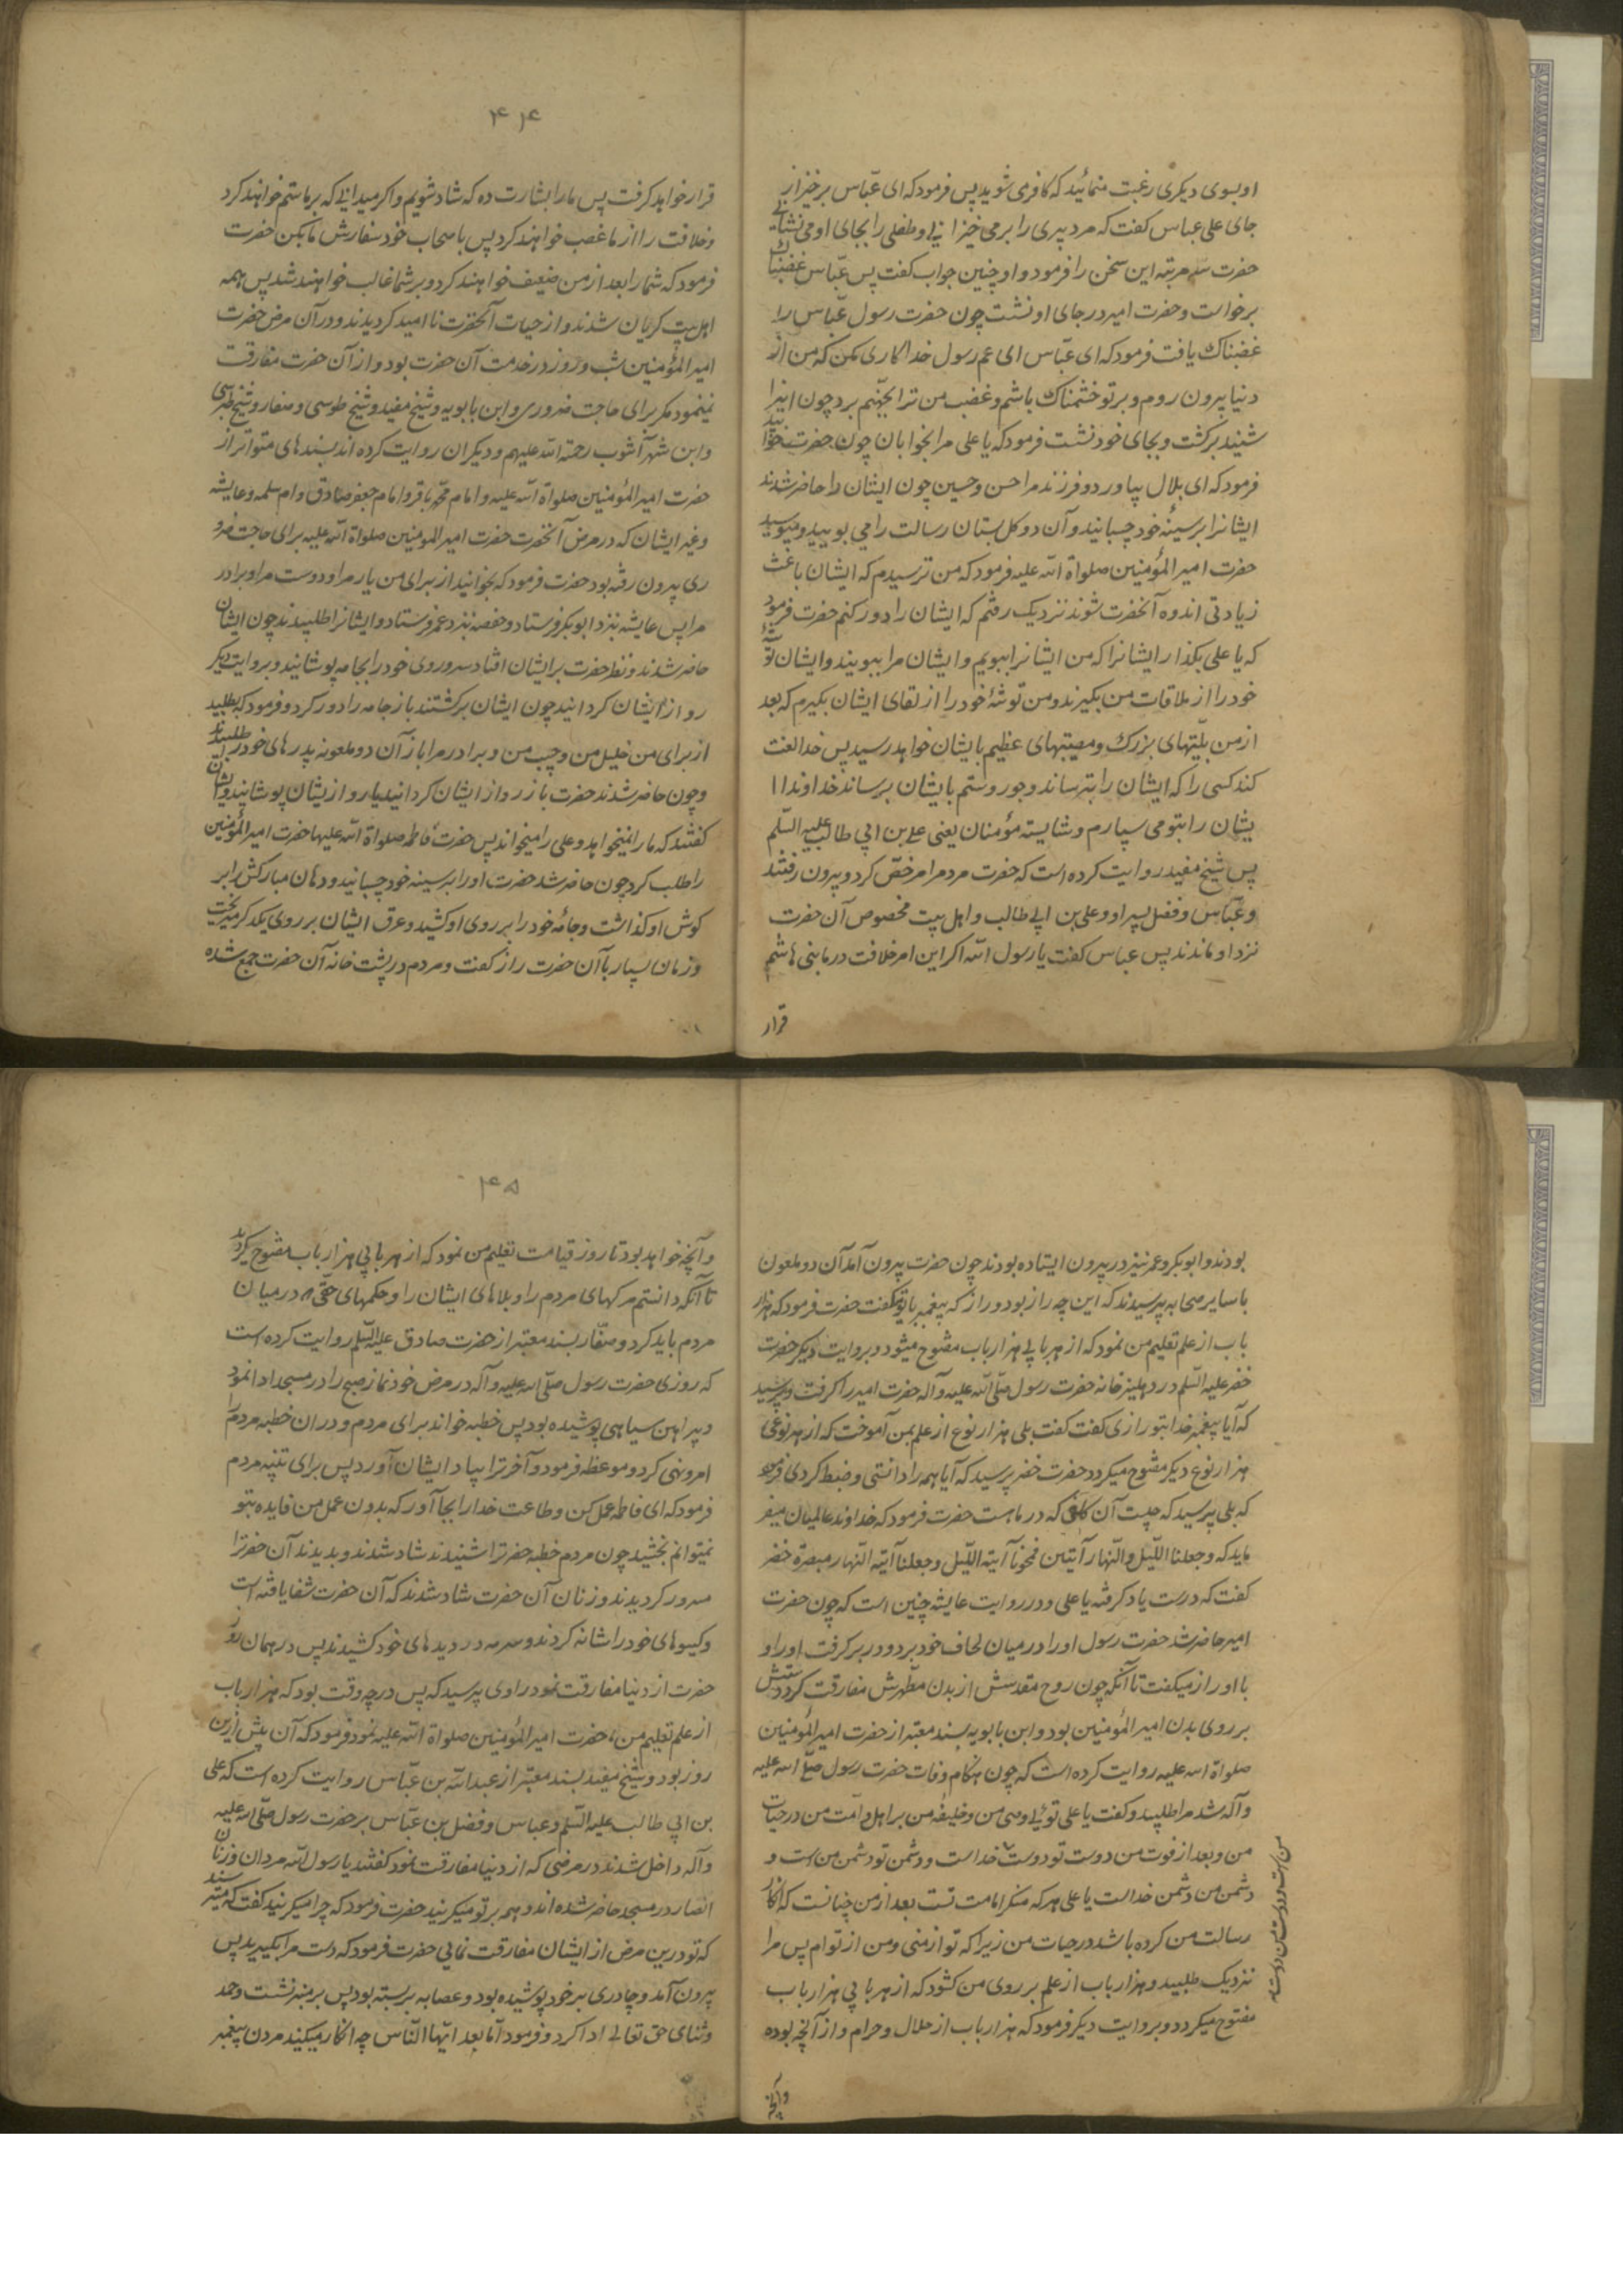 او بسوی دیگری رغبت منمائید که کافر می شوید پس فرمود که ای عبّاس برخیز از
جای علی عباس کفت که مرد پیری را برمی خیزانی و طفلی را بجای او می نشانی
حضرت سه مرتبه این سخن را فرمود و او چنین جواب کفت پس عبّاس غضبناك
برخواست و حضرت امیر در جای او نشست چون حضرت رسول عبّاس را
غضبناك یافت فرمود که ای عبّاس ای عم رسول خدا کاری مکن که من از
دنیا بیرون روم و بر تو خشمناك باشم و غضب من ترا بجهنّم برد چون اینرا
شنید برکشت و بجای خود نشست فرمود که یا علی مرا بخوابان چون حضرت خوابید
فرمود که ای بلال بیاور دو فرزند مرا حسن و حسین چون ایشان را حاضر شدند
ایشانرا بر سینهٔ خود چسبانید و آن دو کل بستان رسالت را می بویید و میبوسید
حضرت امیر المؤمنین صلواة الله علیه فرمود که من ترسیدم که ایشان باعث
زیادتی اندوه آنحضرت شوند نزدیک رفتم که ایشان را دور کنم حضرت فرمود
که یا علی بکذار ایشانرا که من ایشانرا ببویم و ایشان مرا ببویند و ایشان توشهٔ
خود را از ملاقات من بکیرند و من توشهٔ خود را از لقای ایشان بکیرم که بعد
از من بلیّتهای بزرك و مصیبتهای عظیم بایشان خواهد رسید پس خدا لعنت
کند کسی را که ایشان را بترساند و جور و ستم بایشان برساند خداوندا ا
یشان را بتو می سپارم و شایسته مؤمنان یعنی علی بن ابی طالب علیه السّلم
پس شیخ مفید روایت کرده است که حضرت مردم را مرخّص کرد و بیرون رفتند
و عبّاس و فضل پسر او و علی بن ابی طالب و اهل بیت مخصوص آن حضرت
نزد او ماندند پس عباس کفت یا رسول الله اکر این امر خلافت در ما بنی هاشم
قرار
۴۰۴
قرار خواهد کرفت پس ما را بشارت ده که شاد شویم و اکر میدانی که بر ما ستم خواهند کرد
و خلافت را از ما غصب خواهند کرد پس باصحاب خود سفارش ما بکن حضرت
فرمود که شما را بعد از من ضعیف خواهند کرد و بر شما غالب خواهند شد پس همه
اهل بیت کریان شدند و از حیات آنحضرت نا امید کردیدند و در آن مرض حضرت
امیر المؤمنین شب و روز در خدمت آن حضرت بود و از آن حضرت مفارقت
نمینمود مکر برای حاجت ضروری و ابن بابویه و شیخ مفید و شیخ طوسی و صفار و شیخ طبرسی
و ابن شهر آشوب رحمة الله علیهم و دیکران روایت کرده اند بسندهای متواتر از
حضرت امیر المؤمنین صلواة الله علیه و امام محمّد باقر و امام جعفر صادق و ام سلمه و عایشه
و غیر ایشان که در مرض آنحضرت حضرت امیر المومنین صلواة الله علیه برای حاجت ضرو
ری بیرون رفته بود حضرت فرمود که بخوانید از برای من یار مرا و دوست مرا و برادر
مرا پس عایشه بنزد ابوبکر فرستاد و حفصه نزد عمر فرستاد و ایشانرا طلبیدند چون ایشان
حاضر شدند و نظر حضرت بر ایشان افتاد سر و روی خود را بجامه پوشانید و بروایت دیکر
رو از ایشان کردانید چون ایشان برکشتند باز جامه را دور کرد و فرمود که بطلبید
از برای من خلیل من و حبیب من و برادر مرا باز آن دو ملعونه پدرهای خود را طلبیدند
و چون حاضر شدند حضرت باز رو از ایشان کردانید یا رو از یشان پوشانید و ایشان
کفتند که ما را نمیخواهد و علی را میخواند پس حضرت فاطمه صلواة الله علیها حضرت امیر المؤمنین
را طلب کرد چون حاضر شد حضرت او را به سینه خود چسبانید و دهان مبارکش را بر
کوش او کذاشت و جامهٔ خود را بر روی او کشید و عرق ایشان بر روی یکدکر میریخت
و زمان بسیار با آن حضرت راز کفت و مردم در پشت خانه آن حضرت جمع شده
بودند و ابوبکر و عمر نیز در بیرون ایستاده بودند چون حضرت بیرون آمد آن دو ملعون
با سایر صحابه پرسیدند که این چه راز بود و راز که پیغمبر با تو میکفت حضرت فرمود که هزار
باب از علم تعلیم من نمود که از هر بابی هزار باب مفتوح میشود و بروایت دیکر حضرت
خضر علیه السّلم در دهلیز خانه حضرت رسول صلّی الله علیه و آله حضرت امیر را کرفت و پرسید
که آیا پیغمبر خدا بتو رازی کفت کفت بلی هزار نوع از علم بمن آموخت که از هر نوعی
هزار نوع دیکر مفتوح میکردد حضرت خضر پرسید که آیا همه را دانستی و ضبط کردی فرمود
که بلی پرسید که چیست آن که در ماه است حضرت فرمود که خداوند عالمیان میفر
ماید که وجعلنا اللّیل والنّهار آیتین فمحونا آیته اللّیل وجعلنا آیته النّهار مبصرة خضر
کفت که درست یاد کرفتهٔ یا علی و در روایت عایشه چنین است که چون حضرت
امیر حاضر شد حضرت رسول او را در میان لحاف خود برد و در بر کرفت او را و
با او راز میکفت تا آنکه چون روح مقدسش از بدن مطهرش مفارقت کرد دستش
بر روی بدن امیر المؤمنین بود و ابن بابویه بسند معتبر از حضرت امیر المؤمنین
صلواة الله علیه روایت کرده است که چون هنکام وفات حضرت رسول صلّی الله علیه
و آله شد مرا طلبید و کفت یا علی توئی وصی من و خلیفه من بر اهل و امّت من در حیات
من و بعد از فوت من دوست تو دوست خداست و دشمن تو دشمن من است و
دشمن من دشمن خداست یا علی هر که منکر امامت تست بعد از من چنانست که انکار
رسالت من کرده باشد در حیات من زیرا که تو از منی و من از توام پس مرا
نزدیک طلبید و هزار باب از علم بر روی من کشود که از هر بابی هزار باب
مفتوح میکردد و بروایت دیکر فرمود که هزار باب از حلال و حرام و از آنچه بوده
من است و دوست من دوست
و آنچه
۴۰۵
و آنچه خواهد بود تا روز قیامت تعلیم من نمود که از هر بابی هزار باب مفتوح کردید
تا آنکه دانستم مرکهای مردم را و بلاهای ایشان را و حکمهای حقّی که در میان
مردم باید کرد و صفّار بسند معتبر از حضرت صادق علیه السّلم روایت کرده است
که روزی حضرت رسول صلّی الله علیه و آله در مرض خود نماز صبح را در مسجد ادا نمود
و پیراهن سیاهی پوشیده بود پس خطبه خواند برای مردم و در ان خطبه مردم را
امر و نهی کرد و موعظه فرمود و آخرت را بیاد ایشان آورد پس برای تنبیه مردم
فرمود که ای فاطمه عمل کن و طاعت خدا را بجا آور که بدون عمل من فایده بتو
نمیتوانم بخشید چون مردم خطبه حضرترا شنیدند شاد شدند و بدیدند آن حضرترا
مسرور کردیدند و زنان آن حضرت شاد شدند که آن حضرت شفا یافته است
و کیسوهای خود را شانه کردند و سرمه در دیدهای خود کشیدند پس در همان روز
حضرت از دنیا مفارقت نمود راوی پرسید که پس در چه وقت بود که هزار باب
از علم تعلیم حضرت امیر المؤمنین صلواة الله علیه نمود فرمود که آن پیش ازین
روز بود و شیخ مفید بسند معتبر از عبد الله بن عبّاس روایت کرده است که علی
بن ابی طالب علیه السّلم و عباس و فضل بن عبّاس بر حضرت رسول صلّی الله علیه
و آله داخل شدند در مرضی که از دنیا مفارقت نمود کفتند یا رسول الله مردان و زنان
انصار در مسجد حاضر شده اند و همه بر تو میکریند حضرت فرمود که چرا میکریند کفت که میترسند
که تو درین مرض از ایشان مفارقت نمایی حضرت فرمود که دست مرا بکیرید پس
بیرون آمد و چادری بر خود پوشیده بود و عصابه بر سر بسته بود پس بر منبر نشست و حمد
و ثنای حق تعالی ادا کرد و فرمود امّا بعد ایّها النّاس چه انکار میکنید مردن پیغمبر